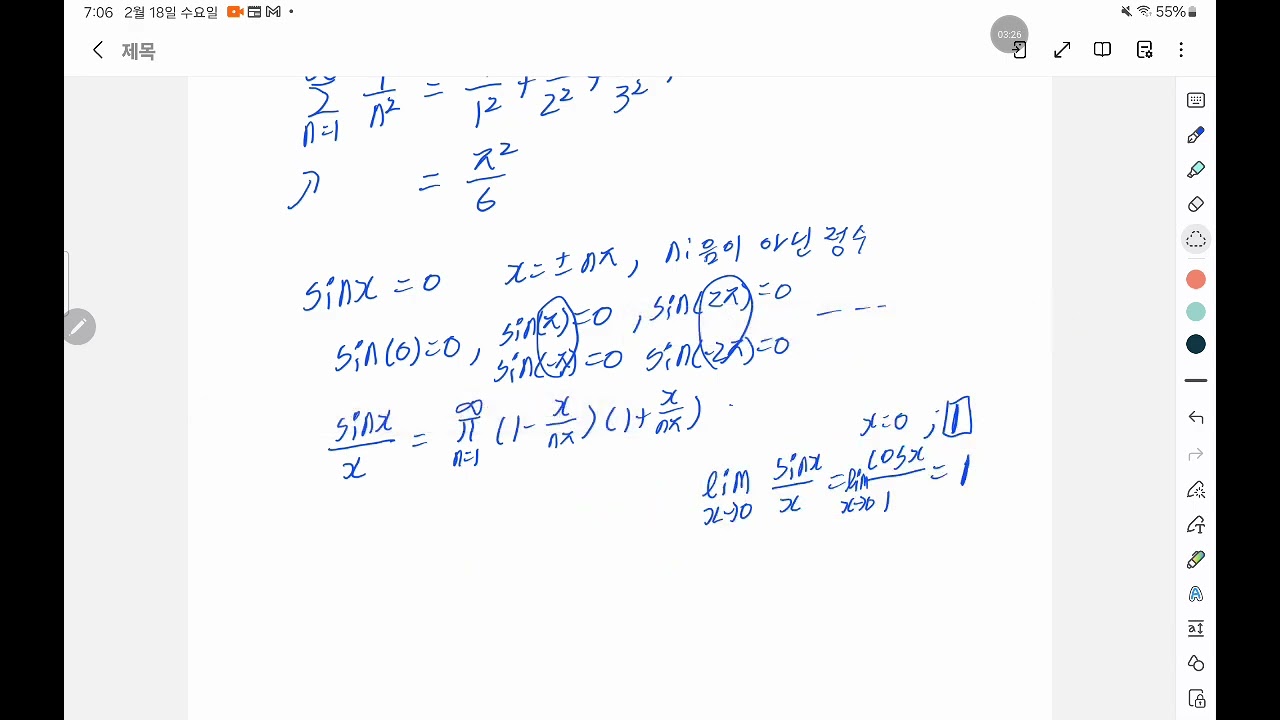 7:06 2월 18일 수요일
55%
03:26
제목
∞
∑ 1/n² = 1/1² + 1/2² + 1/3² ,
n=1
↗ = π²/6
sinx = 0 x = ±nπ , n은 음이 아닌 정수
sin(0)=0 , sin(π)=0 , sin(2π)=0 ― ― ―
sin(-π)=0 sin(-2π)=0
sinx/x = ∞ π n=1 (1 - x/nπ)(1 + x/nπ)
x=0 ; 1
lim x→0 sinx/x = lim x→0 cosx/1 = 1